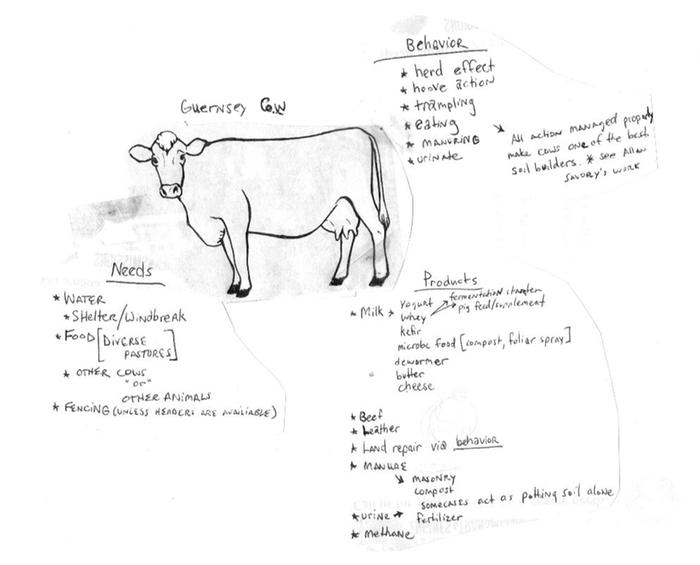 Guernsey Cow
Behavior
* herd effect
* hoove action
* trampling
* eating
* MANURING
* urinate
↘ All action managed properly
make cows one of the best
soil builders. * see Allan
SAVORY'S WORK
Needs
* WATER
* SHELTER/WINDBREAK
* FOOD [DIVERSE
PASTORES]
* OTHER COWS
"or"
OTHER ANIMALS
* FENCING (UNLESS HEADERS ARE AVAILIABLE)
Products
* Milk → yogurt
whey → fermentation starter
→ pig feed/supplement
kefir
microbe food [compost, foliar spray]
dewormer
butter
cheese
* Beef
* Leather
* Land repair via behavior
* MANUAE
↘ MASONRY
compost
SOMECASES act as potting soil alone
* urine → fertilizer
* Methane